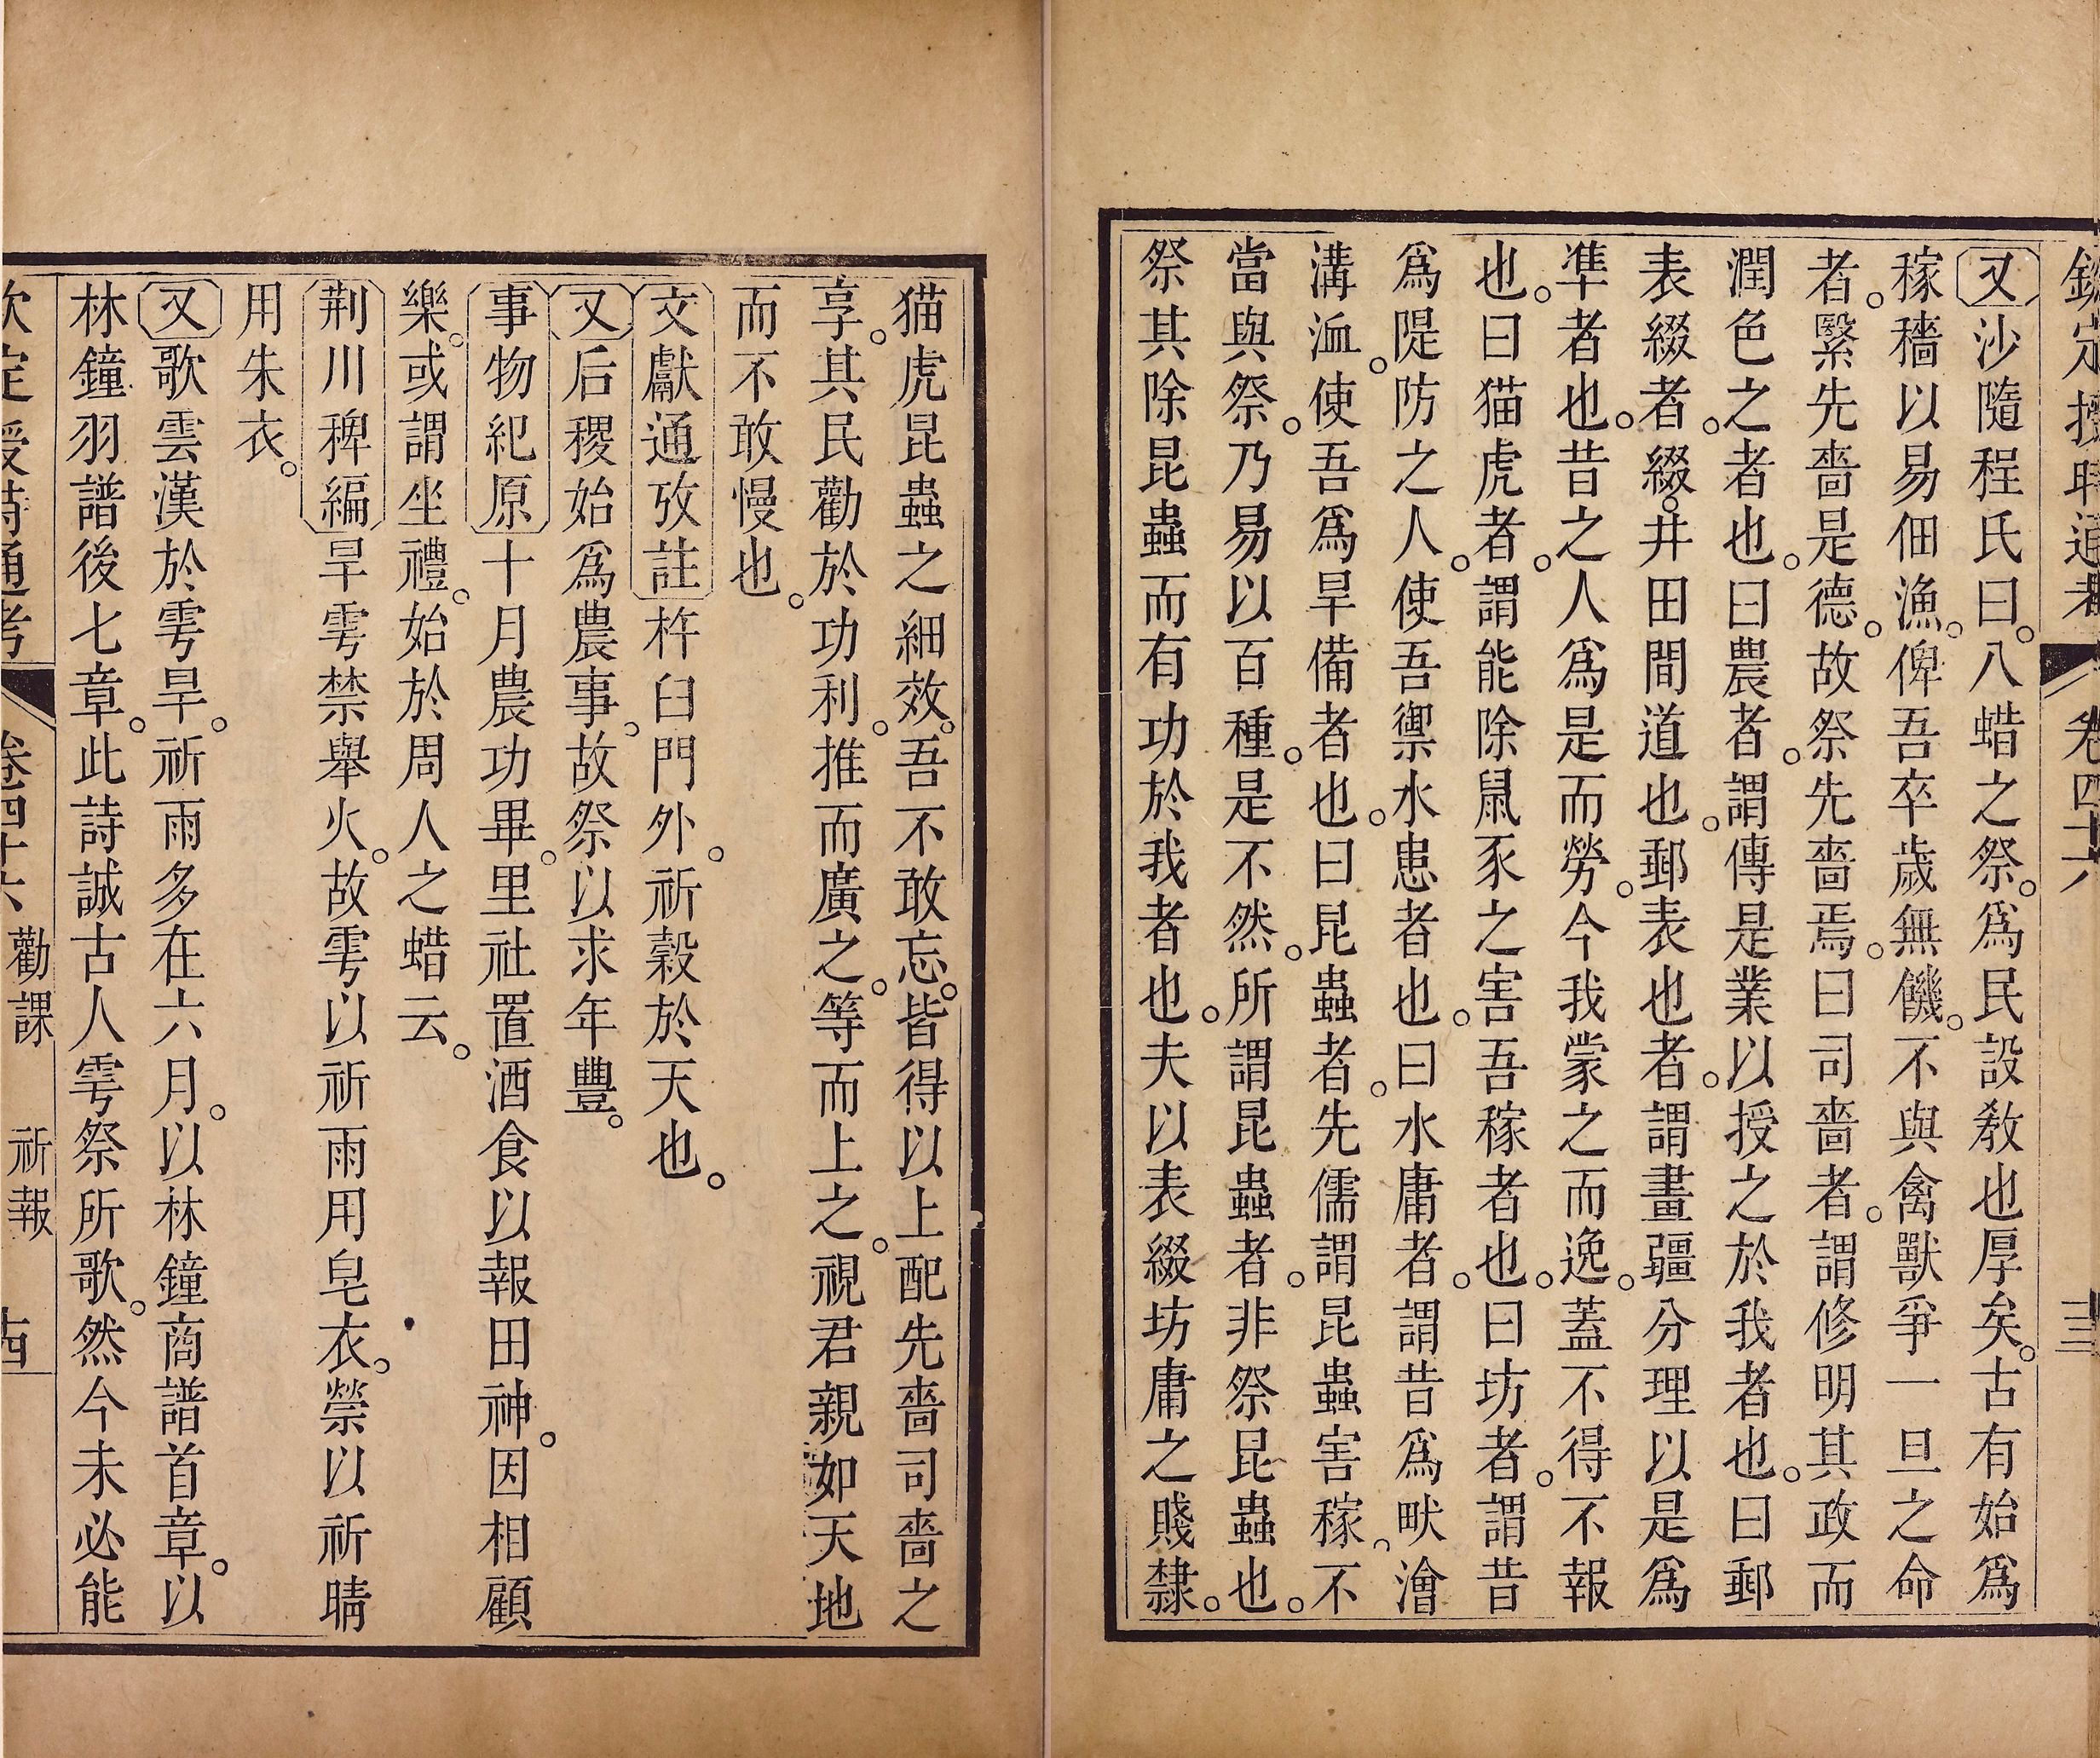 欽定授時通考 卷四十六 十三
又沙隨程氏曰。八蜡之祭。爲民設敎也厚矣。古有始爲
稼穡以易佃漁。俾吾卒歲無饑。不與禽獸爭一旦之命
者。繄先嗇是德。故祭先嗇焉。曰司嗇者。謂修明其政而
潤色之者也。曰農者。謂傳是業以授之於我者也。曰郵
表綴者。綴。井田間道也。郵表也者。謂畫疆分理以是爲
準者也。昔之人爲是而勞。今我蒙之而逸。蓋不得不報
也。曰猫虎者。謂能除鼠豕之害吾稼者也。曰坊者。謂昔
爲隄防之人。使吾禦水患者也。曰水庸者。謂昔爲畎澮
溝洫。使吾爲旱備者也。曰昆蟲者。先儒謂昆蟲害稼。不
當與祭。乃易以百種。是不然。所謂昆蟲者。非祭昆蟲也。
祭其除昆蟲而有功於我者也。夫以表綴坊庸之賤隸。
猫虎昆蟲之細效。吾不敢忘。皆得以上配先嗇司嗇之
享。其民勸於功利。推而廣之。等而上之。視君親如天地
而不敢慢也。
文獻通攷註杵臼門外。祈穀於天也。
又后稷始爲農事。故祭以求年豐。
事物紀原十月農功畢。里社置酒食以報田神。因相顧
樂。或謂坐禮。始於周人之蜡云。
荆川稗編旱雩禁舉火。故雩以祈雨用皂衣。禜以祈晴
用朱衣。
又歌雲漢於雩旱。祈雨多在六月。以林鐘商譜首章。以
林鐘羽譜後七章。此詩誠古人雩祭所歌。然今未必能
欽定授時通考 卷四十六 勸課 祈報 十四